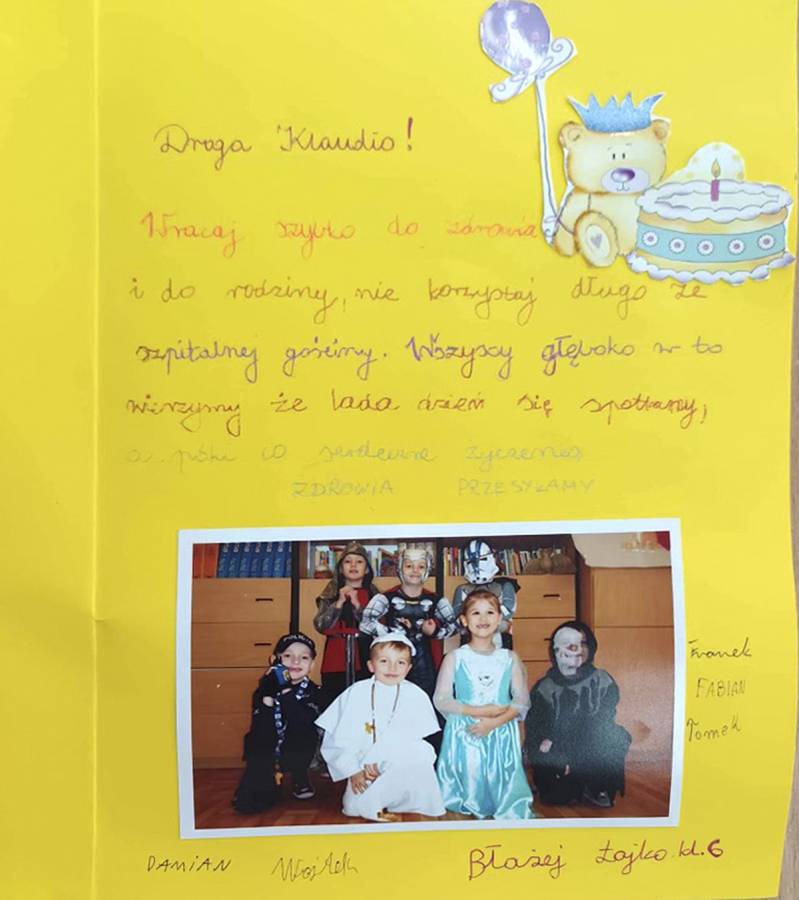 Droga Klaudio!
Wracaj szybko do zdrowia
i do rodziny, nie korzystaj długo ze
szpitalnej gościny. Wszyscy głęboko w to
wierzymy że lada dzień się spotkamy,
a póki co serdeczne życzenia
ZDROWIA PRZESYŁAMY
Franek
FABIAN
Tomek
DAMIAN Wojtek Błażej Łajko kl.6